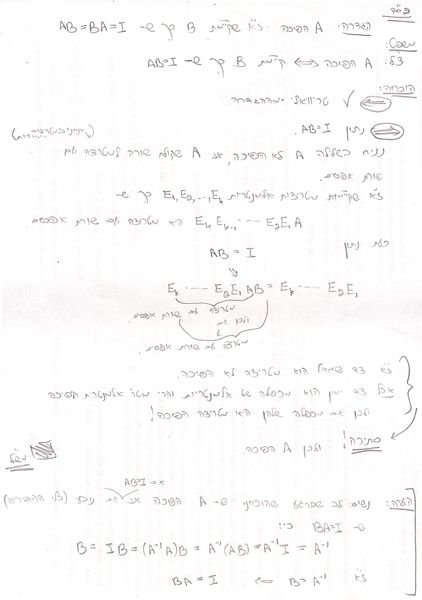 הגדרה: A הפיכה. ז"א שקיימת B כך ש- AB=BA=I
משפט:
צ"ל: A הפיכה ⇔ קיימת B כך ש- AB=I
הוכחה:
⇐ ✓ טריוואלי מההגדרה
⇒ נתון AB=I.
נניח בשלילה A לא הפיכה, אז A שקולת שורה למטריצה עם
שורת אפסים.
ז"א שקיימות מטריצות אלמנטריות E₁,E₂,...,Eₖ כך ש-
EₖEₖ₋₁ ⋯ E₂E₁A היא מטריצה עם שורת אפסים.
כעת נתון
AB = I
⇓
Eₖ ⋯ E₂E₁AB = Eₖ ⋯ E₂E₁
מטריצה עם שורת אפסים.
ולכן גם
מטריצה עם שורת אפסים.
ז"א צד שמאל הוא מטריצה לא הפיכה.
אבל צד ימין הוא מכפלה של אלמנטריות והרי מטר' אלמנטרית הפיכה
ולכן גם מכפלה שלהן היא מטריצה הפיכה!
סתירה! ולכן A הפיכה.
מש"ל
אם AB=I
הערה: נשים לב שברגע שהוכחנו ש- A הפיכה אז גם נובע (לפי ההגדרה)
ש- BA=I כי:
B = IB = (A⁻¹A)B = A⁻¹(AB) = A⁻¹I = A⁻¹
ז"א B = A⁻¹ ⇐ BA = I